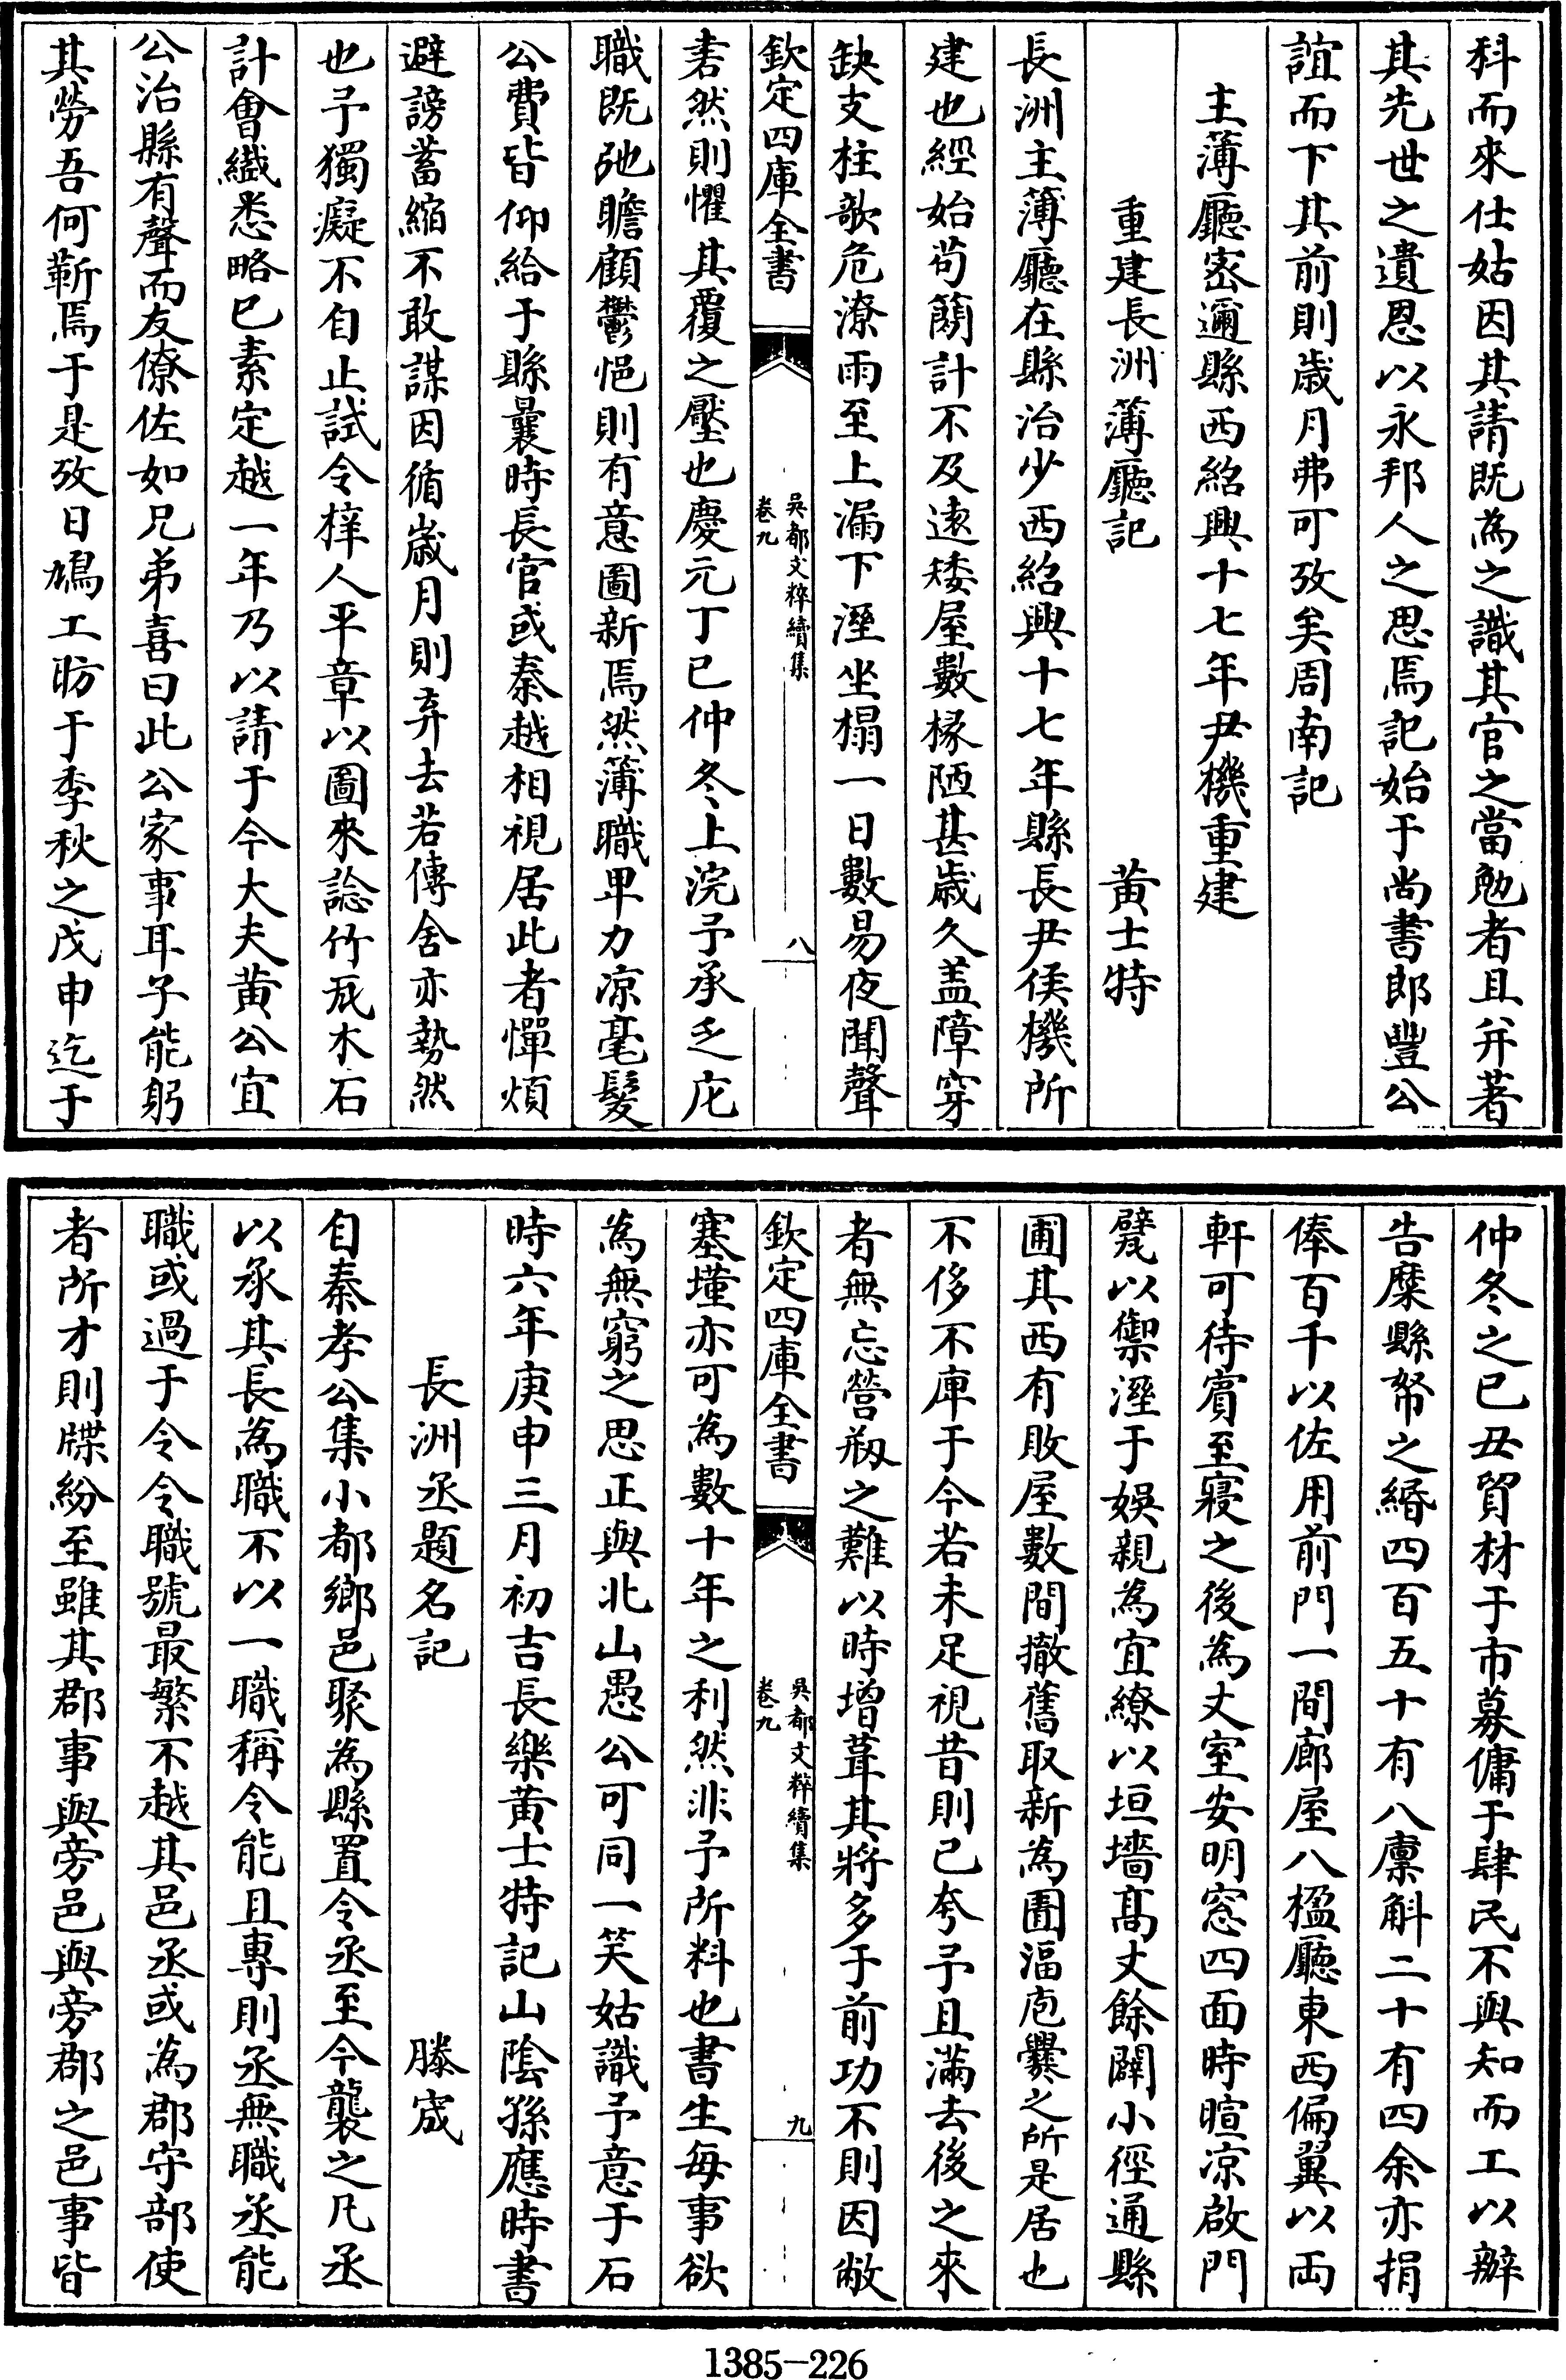 科而來仕姑因其請既為之識其官之當勉者且并著
其先世之遺恩以永邦人之思焉記始于尚書郎豐公
誼而下其前則歲月弗可攷矣周南記
主簿廳宻邇縣西紹興十七年尹機重建
重建長洲簿廳記　黄士特
長洲主簿廳在縣治少西紹興十七年縣長尹侯機所
建也經始茍簡計不及逺矮屋數椽陋甚歲久盖障穿
缺支柱欹危潦雨至上漏下溼坐榻一日數易夜聞聲
欽定四庫全書　吳都文粹續集　卷九　八
砉然則懼其覆之壓也慶元丁巳仲冬上浣予承乏庀
職既弛瞻顧鬱悒則有意圖新焉然簿職卑力凉毫髮
公費皆仰給于縣曩時長官或秦越相視居此者憚煩
避謗蓄縮不敢謀因循歲月則弃去若傳舍亦勢然
也予獨癡不自止試令梓人平章以圖來諗竹瓦木石
計㑹纎悉略已素定越一年乃以請于今大夫黄公宜
公治縣有聲而友僚佐如兄弟喜曰此公家事耳子能躬
其勞吾何靳焉于是攷日鳩工昉于季秋之戊申迄于
仲冬之已丑貿材于市募傭于肆民不與知而工以辦
告糜縣帑之緡四百五十有八廪斛二十有四余亦捐
俸百千以佐用前門一間廊屋八楹廳東西偏翼以兩
軒可待賓至寢之後為丈室安明窓四面時暄凉啟門
甓以禦溼于娛親為宜繚以垣墻髙丈餘闢小徑通縣
圃其西有敗屋數間撤舊取新為圊湢庖爨之所是居也
不侈不庳于今若未足視昔則已夸予且滿去後之來
者無忘營刱之難以時增葺其將多于前功不則因敝
欽定四庫全書　吳都文粹續集　卷九　九
塞墐亦可為數十年之利然非予所料也書生每事欲
為無窮之思正與北山愚公可同一笑姑識予意于石
時六年庚申三月初吉長樂黄士特記山隂孫應時書
長洲丞題名記　滕宬
自秦孝公集小都鄉邑聚為縣置令丞至今襲之凡丞
以承其長為職不以一職稱令能且專則丞無職丞能
職或過于令令職號最繁不越其邑丞或為郡守部使
者所才則牒紛至雖其郡事與旁邑與旁郡之邑事皆
1385-226